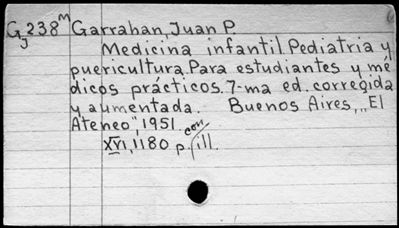 Gj238m Garrahan, Juan P
Medicina infantil. Pediatria y
puericultura. Para estudiantes y mé
dicos prácticos. 7-ma ed. corregida
y aumentada. Buenos Aires, „El
Ateneo", 1951.
XVI, 1180 p. con ill.